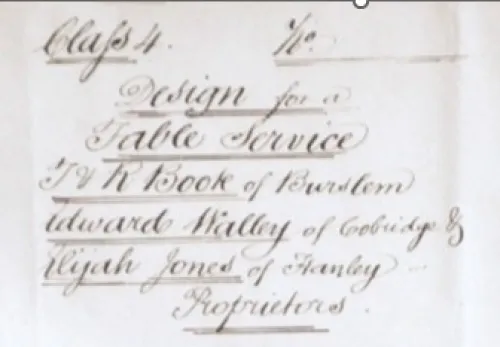 Class 4. No.
Design for a
Table Service
T & R Book of Burslem
Edward Walley of Cobridge &
Elijah Jones of Hanley
Proprietors.